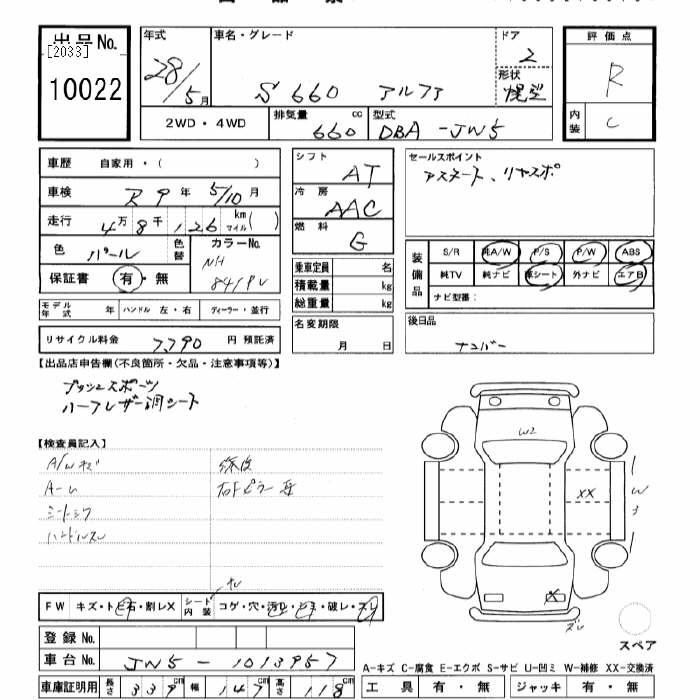 出品No.
[2033]
10022
年式
28/5月
車名・グレード
S660 アルファ
ドア
2
形状
幌型
評価点
R
内装
C
2WD・4WD
排気量 660 cc
型式
DBA-JW5
車歴 自家用・( )
車検 R9年 5/10月
走行 4万8千126 km マイル( )
色 パール
色替
カラーNo.
NH
841PU
保証書 有・無
モデル年式 年 ハンドル 左・右 ディーラー・並行
リサイクル料金 7,790 円 預託済
シフト AT
冷房 AAC
燃料 G
乗車定員 名
積載量 kg
総重量 kg
名変期限
月 日
セールスポイント
アスタート、リヤスポ
装備品
S/R 純A/W P/S P/W ABS
純TV 純ナビ 革シート 外ナビ エアB
ナビ型番:
後日品
ナンバー
【出品店申告欄(不良箇所・欠品・注意事項等)】
プッシュスタート
ハーフレザー調シート
【検査員記入】
A/Wキズ
シートシワ
ハンドルスレ
W2
XX
W3
X
ズレ
スペア
FW キズ・トビ石・割レX シート内装 コゲ・穴・汚レ・シミ・破レ・スレ
登録No.
車台No. JW5-1013957
車庫証明用 長さ 339cm 幅 147cm 高さ 118cm
A-キズ C-腐食 E-エクボ S-サビ U-凹ミ W-補修 XX-交換済
工具 有・無 ジャッキ 有・無